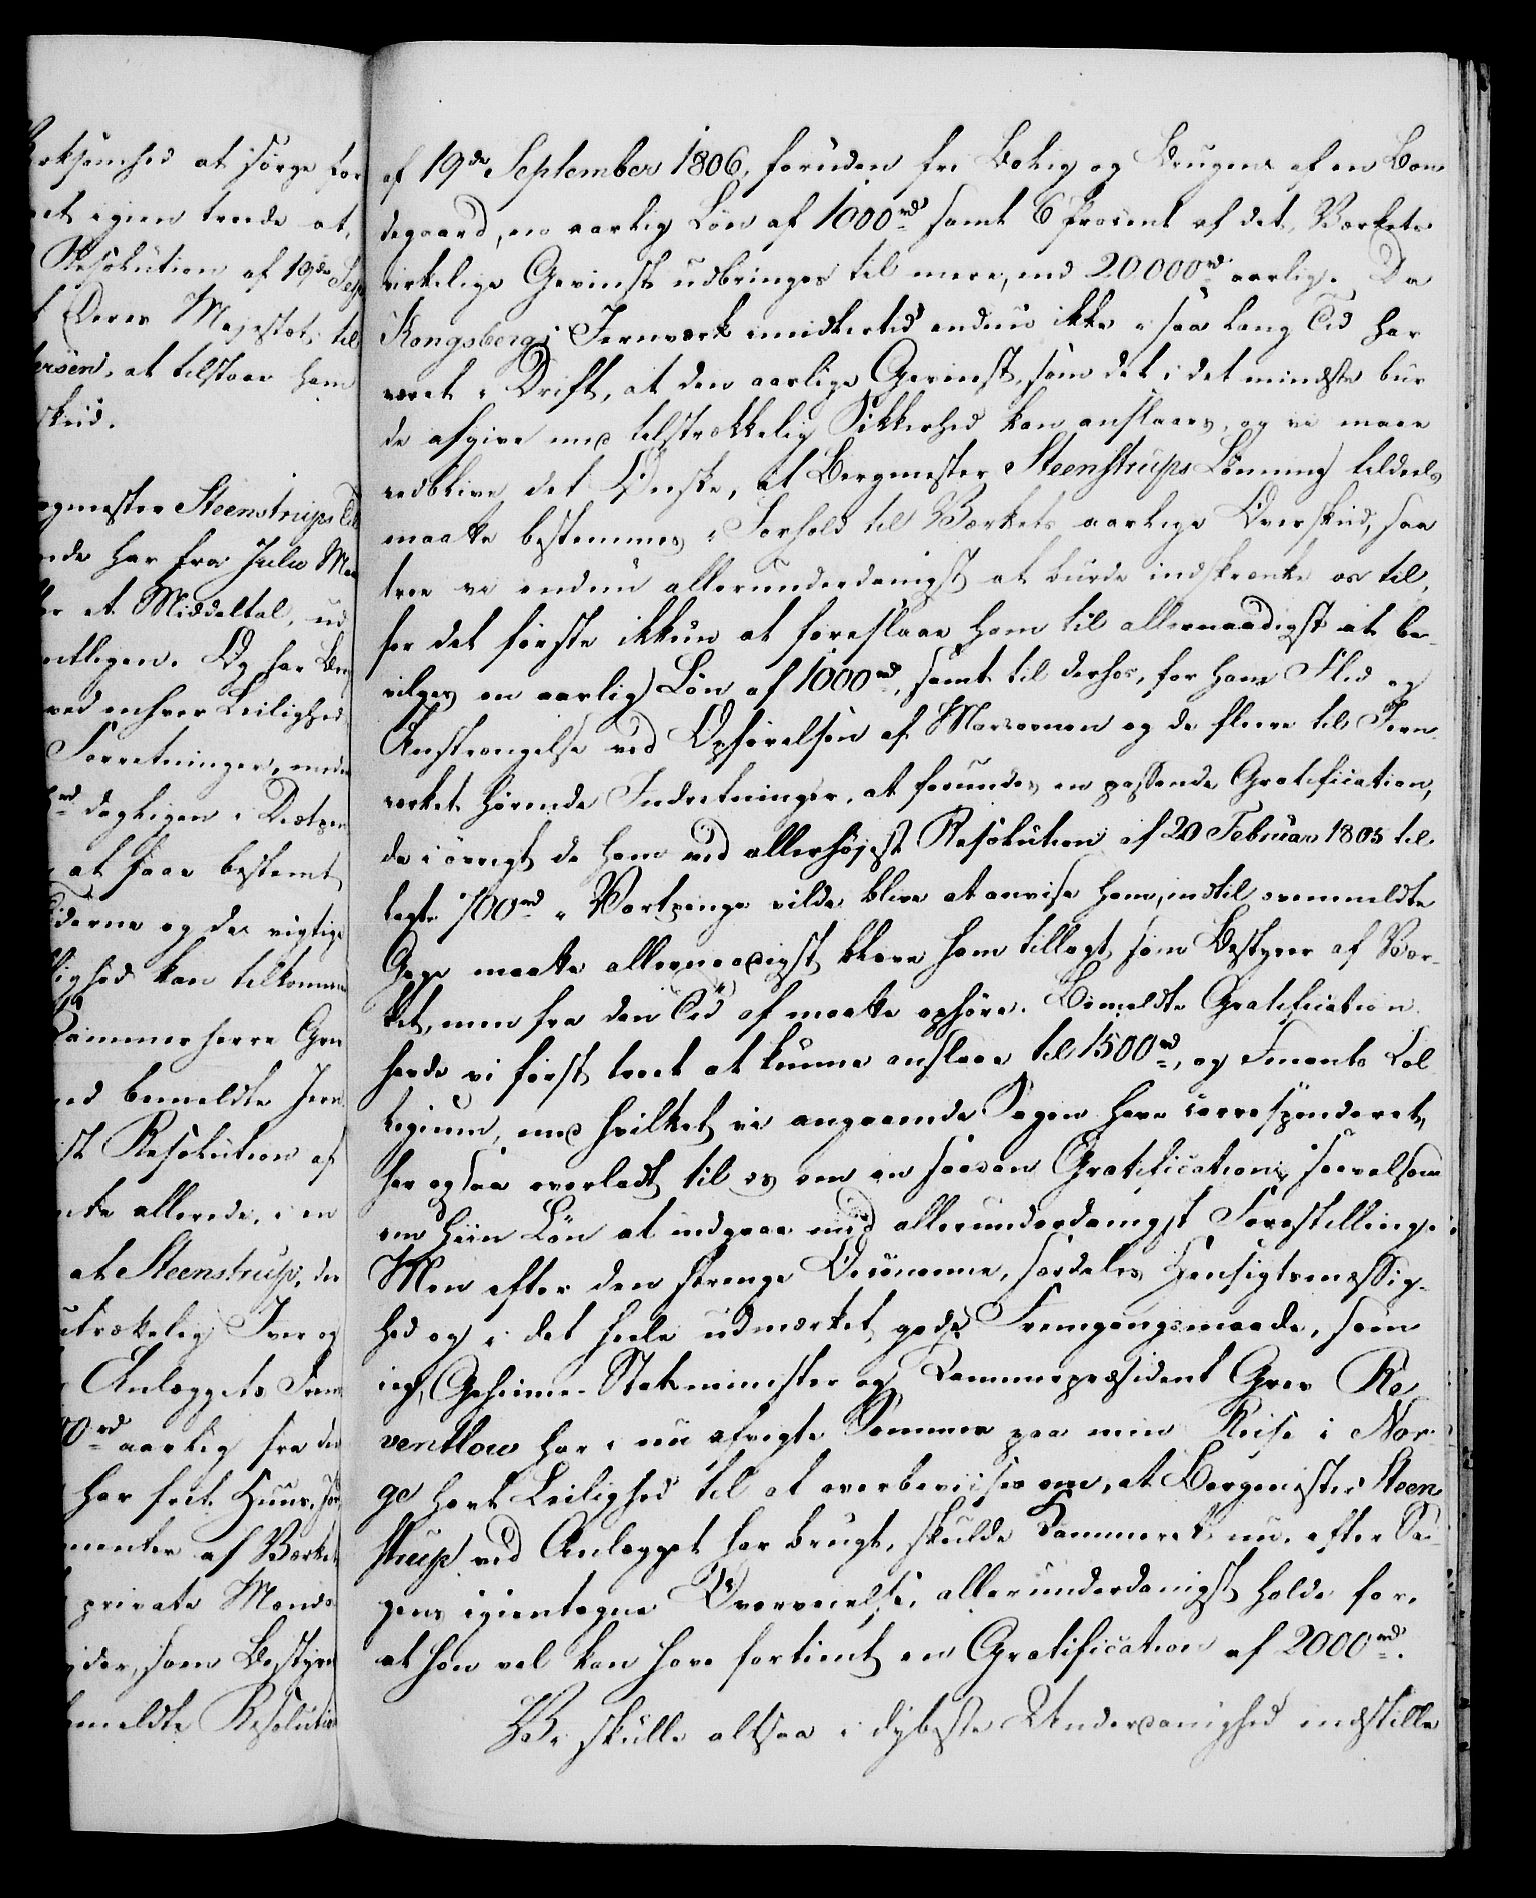 Virksomhed at sørge for
et igien trende at,
Resolution af 19de Sep
Deres Majestæt, til
ersen, at tilstaae ham
skud.
ergmester Steenstrups
nde har fra Julii Maa
et Middeltal, ud
ntligen. Og har Ber
ved enhver Leilighed
Forretninger, mede
rd dagligen i Diætpen
at faae bestemt
iderne og den vigtige
lighed kan tilkomme
Kammerherre
ed bemeldte Jern
st Resolution af
nte allerede, i en
at Steenstrup, der
utrættelig Iver og
Anlæggets Frem
00rd aarlig fra den
har frit Huus,
menter af Værket
private Mænds
ider, som Bestyre
meldte Resolution
af 19de September 1806, foruden fri Bolig og Brugen af en Bon
degaard, en aarlig Løn af 1000rd samt 6 Procent af det, Værkets
virkelige Gevinst udbringes til mere, end 20000rd aarlig. Da
Kongsbergs Jernværk imidlertid endnu ikke i saa lang Tid har
været i Drift, at den aarlige Gevinst, som det i det mindste bur
de afgive med tilstrækkelig Sikkerhed kan anslaaes, og vi maae
vedblive det Ønske, at Bergmester Steenstrups Lønning tildeels
maatte bestemmes i Forhold til Værkets aarlige Overskud, saa
troe vi endnu allerunderdanigst at burde indskrænke os til,
for det første ikkun at foreslaae ham til allernaadigst at be-
vilges en aarlig Løn af 1000rd, samt til derhos, for hans Flid og
Anstrengelse ved Opførelsen af Masovnen og de flere til Jern-
værket hørende Indretninger, at forundes en passende Gratification,
da i øvrigt de ham ved allerhøjest Resolution af 20 Februar 1805 til
lagte 700rd i Vartpenge vilde blive at anvise ham, indtil ovenmeldte
Gage maatte allernaadigst blive ham tillagt som Bestyrer af Vær-
ket, men fra den Tid af maatte ophøre. Bemeldte Gratification
havde vi først troet at kunne anslaae til 1500rd, og Finants Col
legium, med hvilket vi angaaende Sagen have correspenderet,
har ogsaa overladt til os om en saadan Gratification, saavelsom
om hiin Løn at indgaae med allerunderdanigst Forestilling.
Men efter den strenge Oeconomie, særdeles Hensigtsmæssig-
hed og i det hele udmærket gode Fremgangsmaade, som
ieg, Geheime-Statsminister og Kammerpræsident Grev Re
ventlow har i nu afvigte Sommer paa min Reise i Nor-
ge havt Leilighed til at overbevises om, at Bergmester Steen
strup ved Anlægget har brugt, skulde Kammeret nu, efter Sa-
gens igientagne Overveielse, allerunderdanigst holde for,
at han vel kan have fortient en Gratification af 2000rd.
Vi skulle altsaa i dybeste Underdanighed indstille